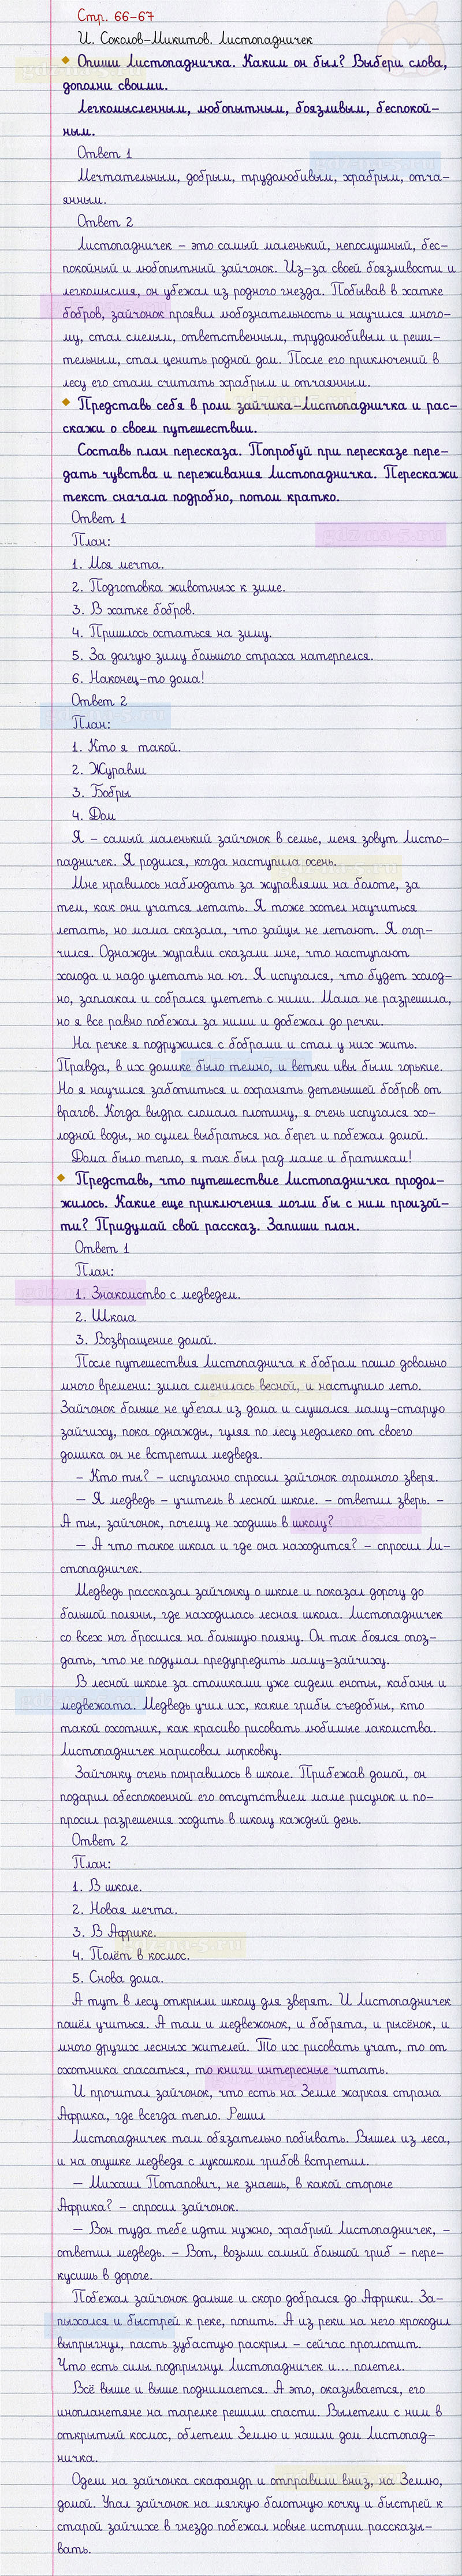 Стр. 66-67
И. Соколов-Микитов. Листопадничек
Опиши Листопадничка. Каким он был? Выбери слова,
дополни своими.
Легкомысленным, любопытным, боязливым, беспокой-
ным.
Ответ 1
Мечтательным, добрым, трудолюбивым, храбрым, отча-
янным.
Ответ 2
Листопадничек – это самый маленький, непослушный, бес-
покойный и любопытный зайчонок. Из-за своей боязливости и
легкомыслия, он убежал из родного гнезда. Побывав в хатке
бобров, зайчонок проявил любознательность и научился много-
му, стал смелым, ответственным, трудолюбивым и реши-
тельным, стал ценить родной дом. После его приключений в
лесу его стали считать храбрым и отчаянным.
Представь себя в роли зайчика-Листопадничка и рас-
скажи о своем путешествии.
Составь план пересказа. Попробуй при пересказе пере-
дать чувства и переживания Листопадничка. Перескажи
текст сначала подробно, потом кратко.
Ответ 1
План:
1. Моя мечта.
2. Подготовка животных к зиме.
3. В хатке бобров.
4. Пришлось остаться на зиму.
5. За долгую зиму большого страха натерпелся.
6. Наконец-то дома!
Ответ 2
План:
1. Кто я такой.
2. Журавли
3. Бобры
4. Дом
Я – самый маленький зайчонок в семье, меня зовут Листо-
падничек. Я родился, когда наступила осень.
Мне нравилось наблюдать за журавлями на болоте, за
тем, как они учатся летать. Я тоже хотел научиться
летать, но мама сказала, что зайцы не летают. Я огор-
чился. Однажды журавли сказали мне, что наступают
холода и надо улетать на юг. Я испугался, что будет холод-
но, заплакал и собрался улететь с ними. Мама не разрешила,
но я все равно побежал за ними и добежал до речки.
На речке я подружился с бобрами и стал у них жить.
Правда, в их домике было темно, и ветки ивы были горькие.
Но я научился заботиться и охранять детенышей бобров от
врагов. Когда выдра сломала плотину, я очень испугался хо-
лодной воды, но сумел выбраться на берег и побежал домой.
Дома было тепло, я так был рад маме и братикам!
Представь, что путешествие Листопадничка продол-
жилось. Какие еще приключения могли бы с ним произой-
ти? Придумай свой рассказ. Запиши план.
Ответ 1
План:
1. Знакомство с медведем.
2. Школа
3. Возвращение домой.
После путешествия Листопаднича к бобрам пошло довольно
много времени: зима сменилась весной, и наступило лето.
Зайчонок больше не убегал из дома и слушался маму-старую
зайчиху, пока однажды, гуляя по лесу недалеко от своего
домика он не встретил медведя.
– Кто ты? – испуганно спросил зайчонок огромного зверя.
– Я медведь – учитель в лесной школе. – ответил зверь. –
А ты, зайчонок, почему не ходишь в школу?
– А что такое школа и где она находится? – спросил Ли-
стопадничек.
Медведь рассказал зайчонку о школе и показал дорогу до
большой поляны, где находилась лесная школа. Листопадничек
со всех ног бросился на большую поляну. Он так боялся опоз-
дать, что не подумал предупредить маму-зайчиху.
В лесной школе за столиками уже сидели еноты, кабаны и
медвежата. Медведь учил их, какие грибы съедобны, кто
такой охотник, как красиво рисовать любимые лакомства.
Листопадничек нарисовал морковку.
Зайчонку очень понравилось в школе. Прибежав домой, он
подарил обеспокоенной его отсутствием маме рисунок и по-
просил разрешения ходить в школу каждый день.
Ответ 2
План:
1. В школе.
2. Новая мечта.
3. В Африке.
4. Полёт в космос.
5. Снова дома.
А тут в лесу открыли школу для зверят. И Листопадничек
пошёл учиться. А там и медвежонок, и бобрята, и рысёнок, и
много других лесных жителей. То их рисовать учат, то от
охотника спасаться, то книги интересные читать.
И прочитал зайчонок, что есть на Земле жаркая страна
Африка, где всегда тепло. Решил
Листопадничек там обязательно побывать. Вышел из леса,
и на опушке медведя с лукошком грибов встретил.
– Михаил Потапович, не знаешь, в какой стороне
Африка? – спросил зайчонок.
– Вон туда тебе идти нужно, храбрый Листопадничек, –
ответил медведь. – Вот, возьми самый большой гриб – пере-
кусишь в дороге.
Побежал зайчонок дальше и скоро добрался до Африки. За-
пыхался и быстрей к реке, попить. А из реки на него крокодил
выпрыгнул, пасть зубастую раскрыл – сейчас проглотит.
Что есть силы подпрыгнул Листопадничек и... полетел.
Всё выше и выше поднимается. А это, оказывается, его
инопланетяне на тарелке решили спасти. Вылетели с ним в
открытый космос, облетели Землю и нашли дом Листопад-
ничка.
Одели на зайчонка скафандр и отправили вниз, на Землю,
домой. Упал зайчонок на мягкую болотную кочку и быстрей к
старой зайчихе в гнездо побежал новые истории рассказы-
вать.